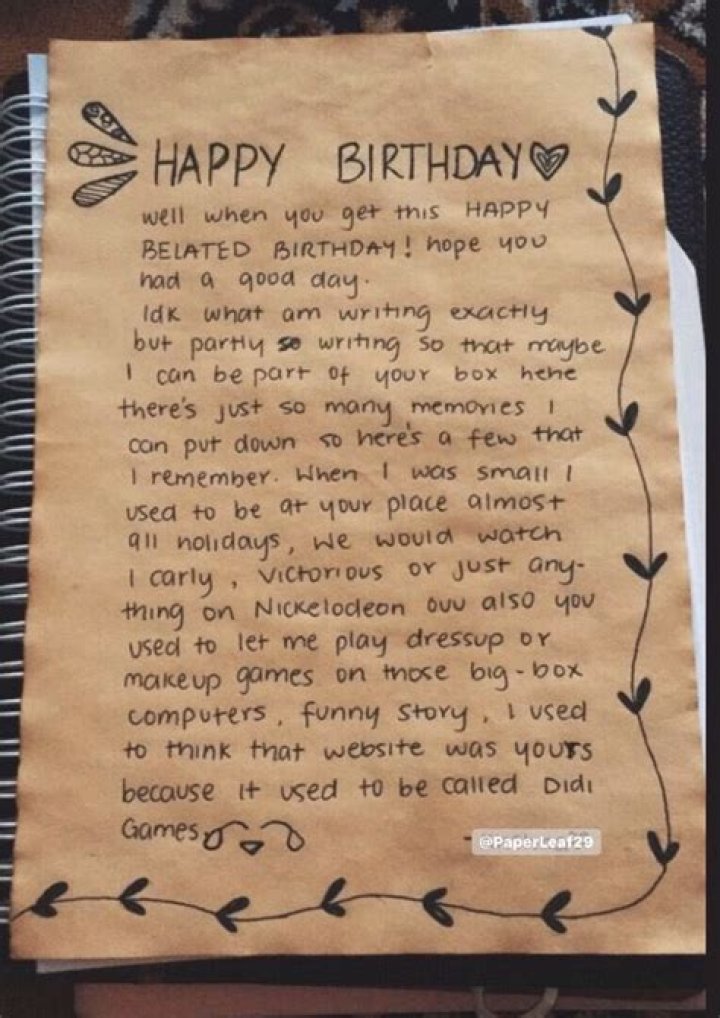 HAPPY BIRTHDAY
well when you get this HAPPY
BELATED BIRTHDAY! hope you
had a good day.
Idk what am writing exactly
but partly so writing so that maybe
I can be part of your box hehe
there's just so many memories I
can put down so here's a few that
I remember. When I was small I
used to be at your place almost
all holidays, we would watch
I carly, Victorious or just any-
thing on Nickelodeon ouu also you
used to let me play dressup or
makeup games on those big-box
computers, funny story, I used
to think that website was yours
because it used to be called Didi
Games,
@PaperLeaf29